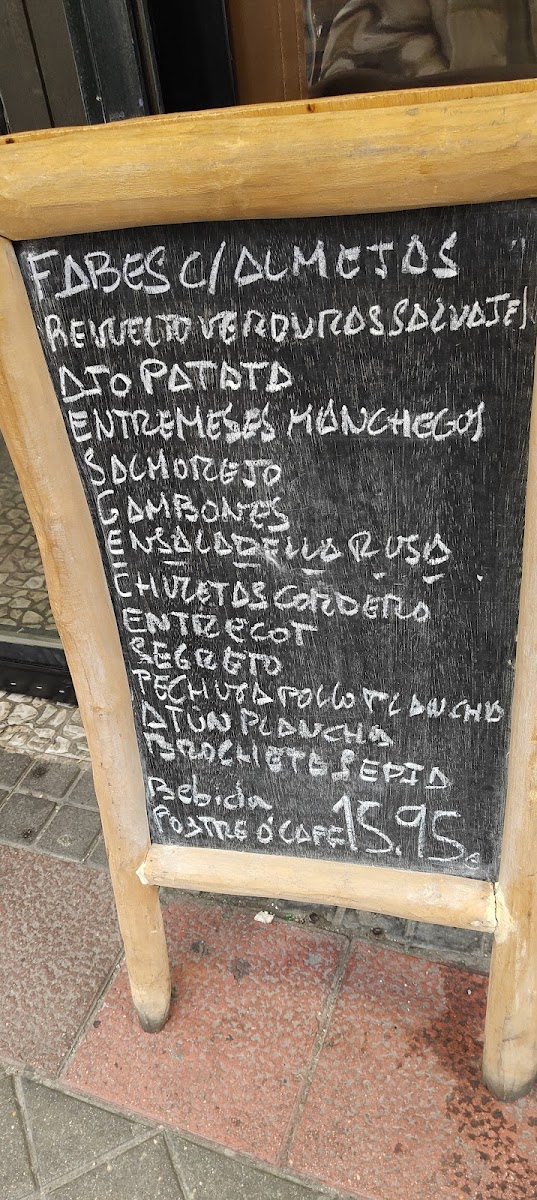 FABES C/ALMEJAS
REVUELTO VERDURAS SALVAJES
AJO PATATA
ENTREMESES MANCHEGOS
SALMOREJO
GAMBONES
ENSALADILLA RUSA
CHULETAS CORDERO
ENTRECOT
SECRETO
PECHUGA POLLO PLANCHA
ATÚN PLANCHA
BROCHETA SEPIA
Bebida
POSTRE Ó CAFE 15.95€